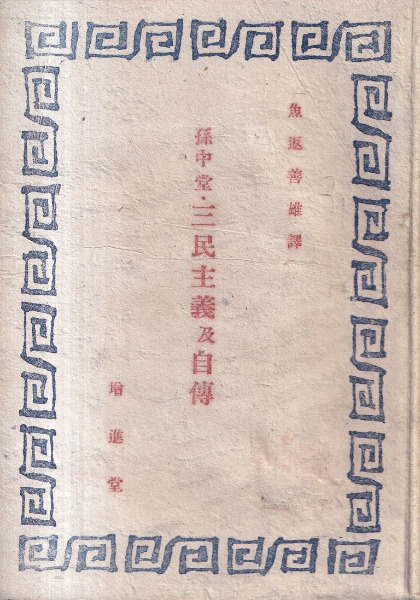 魚返善雄譯
孫中堂・三民主義及自傳
増進堂